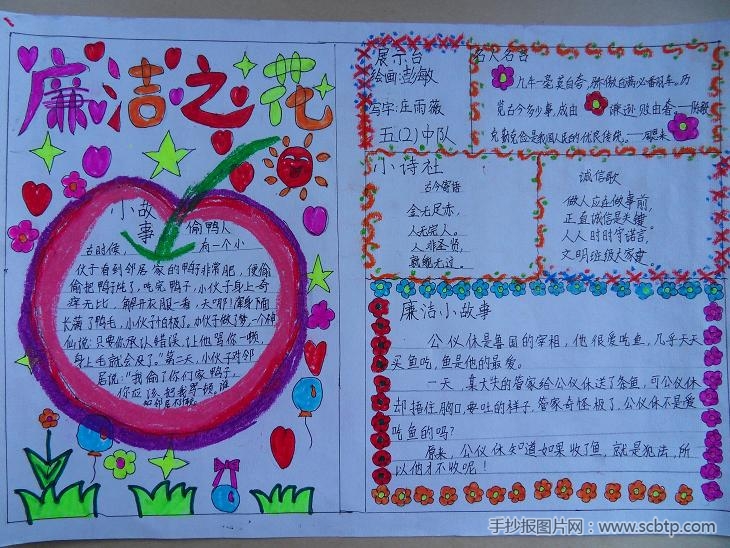 廉洁之花
小故事
偷鸭人
古时候，有一个小
伙子看到邻居家的鸭子非常肥，便偷
偷把鸭子吃了，吃完鸭子，小伙子身上奇
痒无比，解开衣服一看，天哪！浑身上面
长满了鸭毛，小伙子怕极了。小伙子做了梦，一个神
仙说：只要你承认错误，让他骂你一顿，
身上毛就会没了。"第二天，小伙子对邻
居说："我偷了你们家鸭子，
你应该把我骂一顿。谁
知邻居不
展示台
绘画：彭敏
写字：庄雨薇
五(2)中队
名人名言
九牛一毫莫自夸，骄傲自满必翻车。历
览古今多少事，成由谦逊败由奢。——陈毅
克勤克俭是我国人民的优良传统。——周恩来
小诗社
古今寄语
金无足赤，
人无完人。
人非圣贤，
孰能无过。
诚信歌
做人应在做事前，
正直诚信是关键。
人人时时守诺言，
文明班级大家
廉洁小故事
公仪休是鲁国的宰相，他很爱吃鱼，几乎天天
买鱼吃，鱼是他的最爱。
一天，某大夫的管家给公仪休送了条鱼，可公仪休
却捂住胸口，要吐的样子，管家奇怪极了，公仪休不是爱
吃鱼的吗？
原来，公仪休知道如果收了鱼，就是犯法，所
以他才不收呢！
手抄报图片网：www.scbtp.com